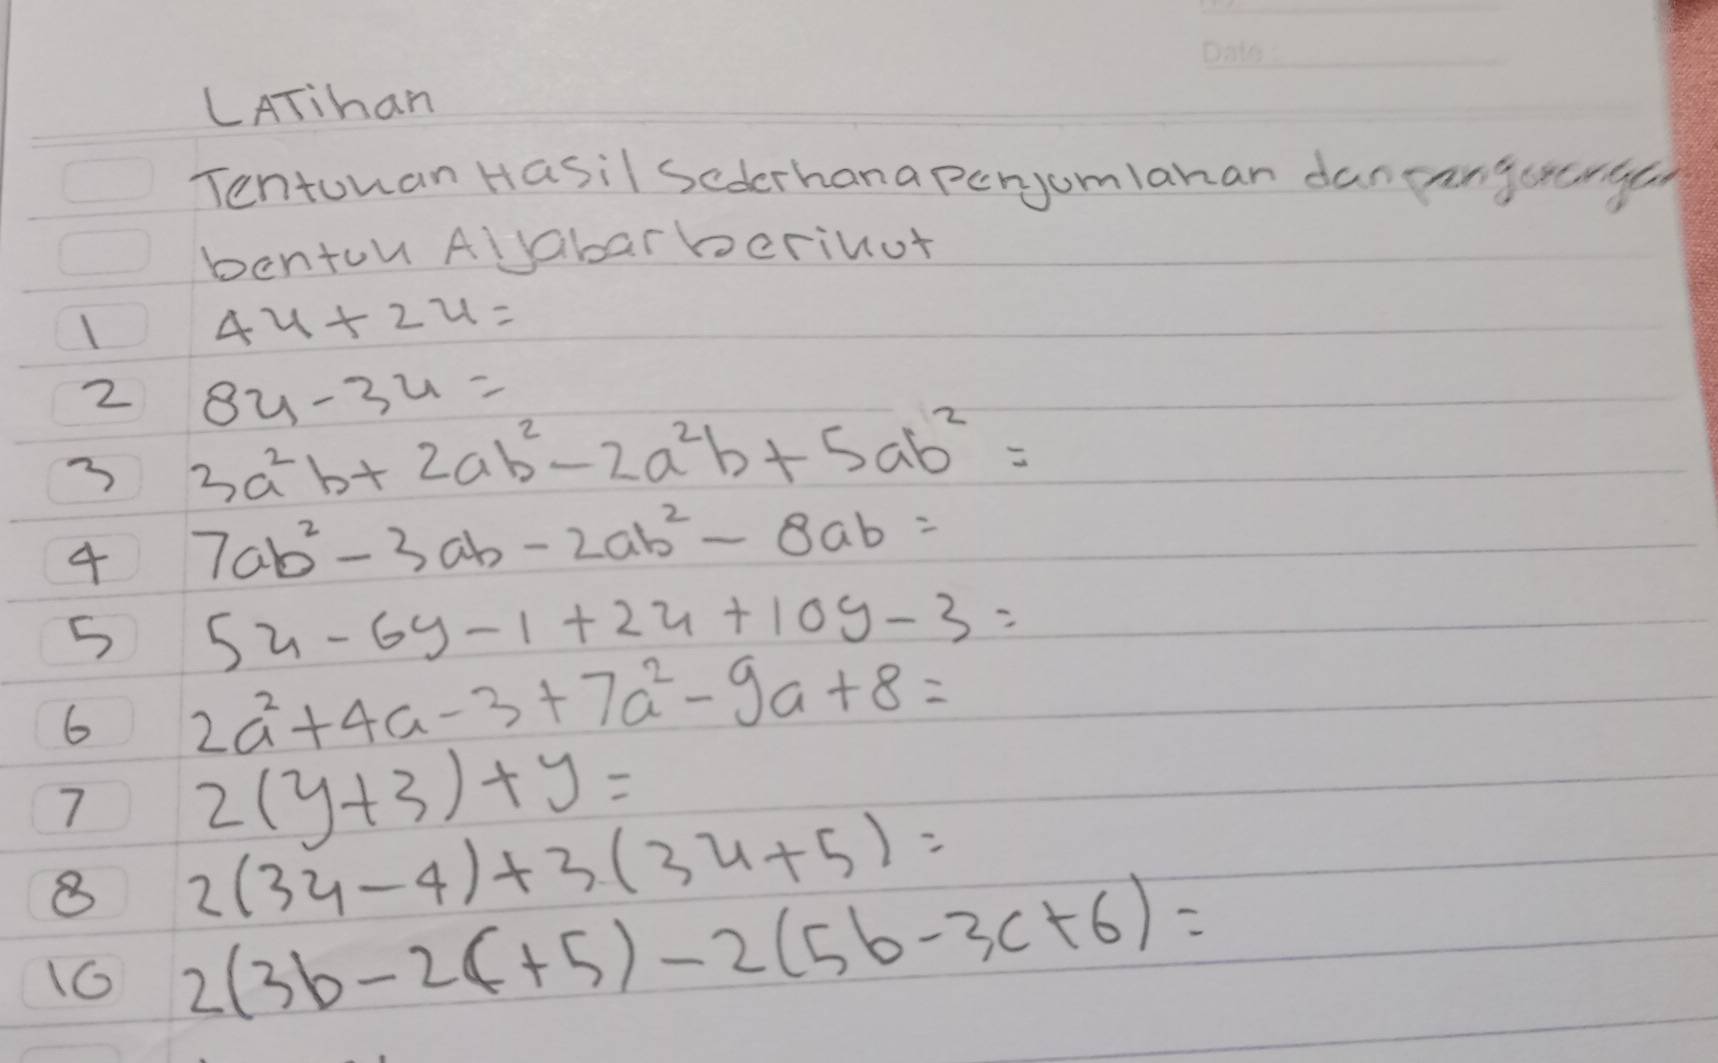 Date:
LATihan
Tentukan Hasil Sederhana Penjumlahan dan pengurangan
bentuk Aljabar berikut
1 4x + 2x =
2 8x - 3x =
3 3a²b + 2ab² - 2a²b + 5ab² =
4 7ab² - 3ab - 2ab² - 8ab =
5 5x - 6y - 1 + 2x + 10y - 3 =
6 2a² + 4a - 3 + 7a² - 9a + 8 =
7 2(y + 3) + y =
8 2(3x - 4) + 3(3x + 5) =
10 2(3b - 2c + 5) - 2(5b - 3c + 6) =